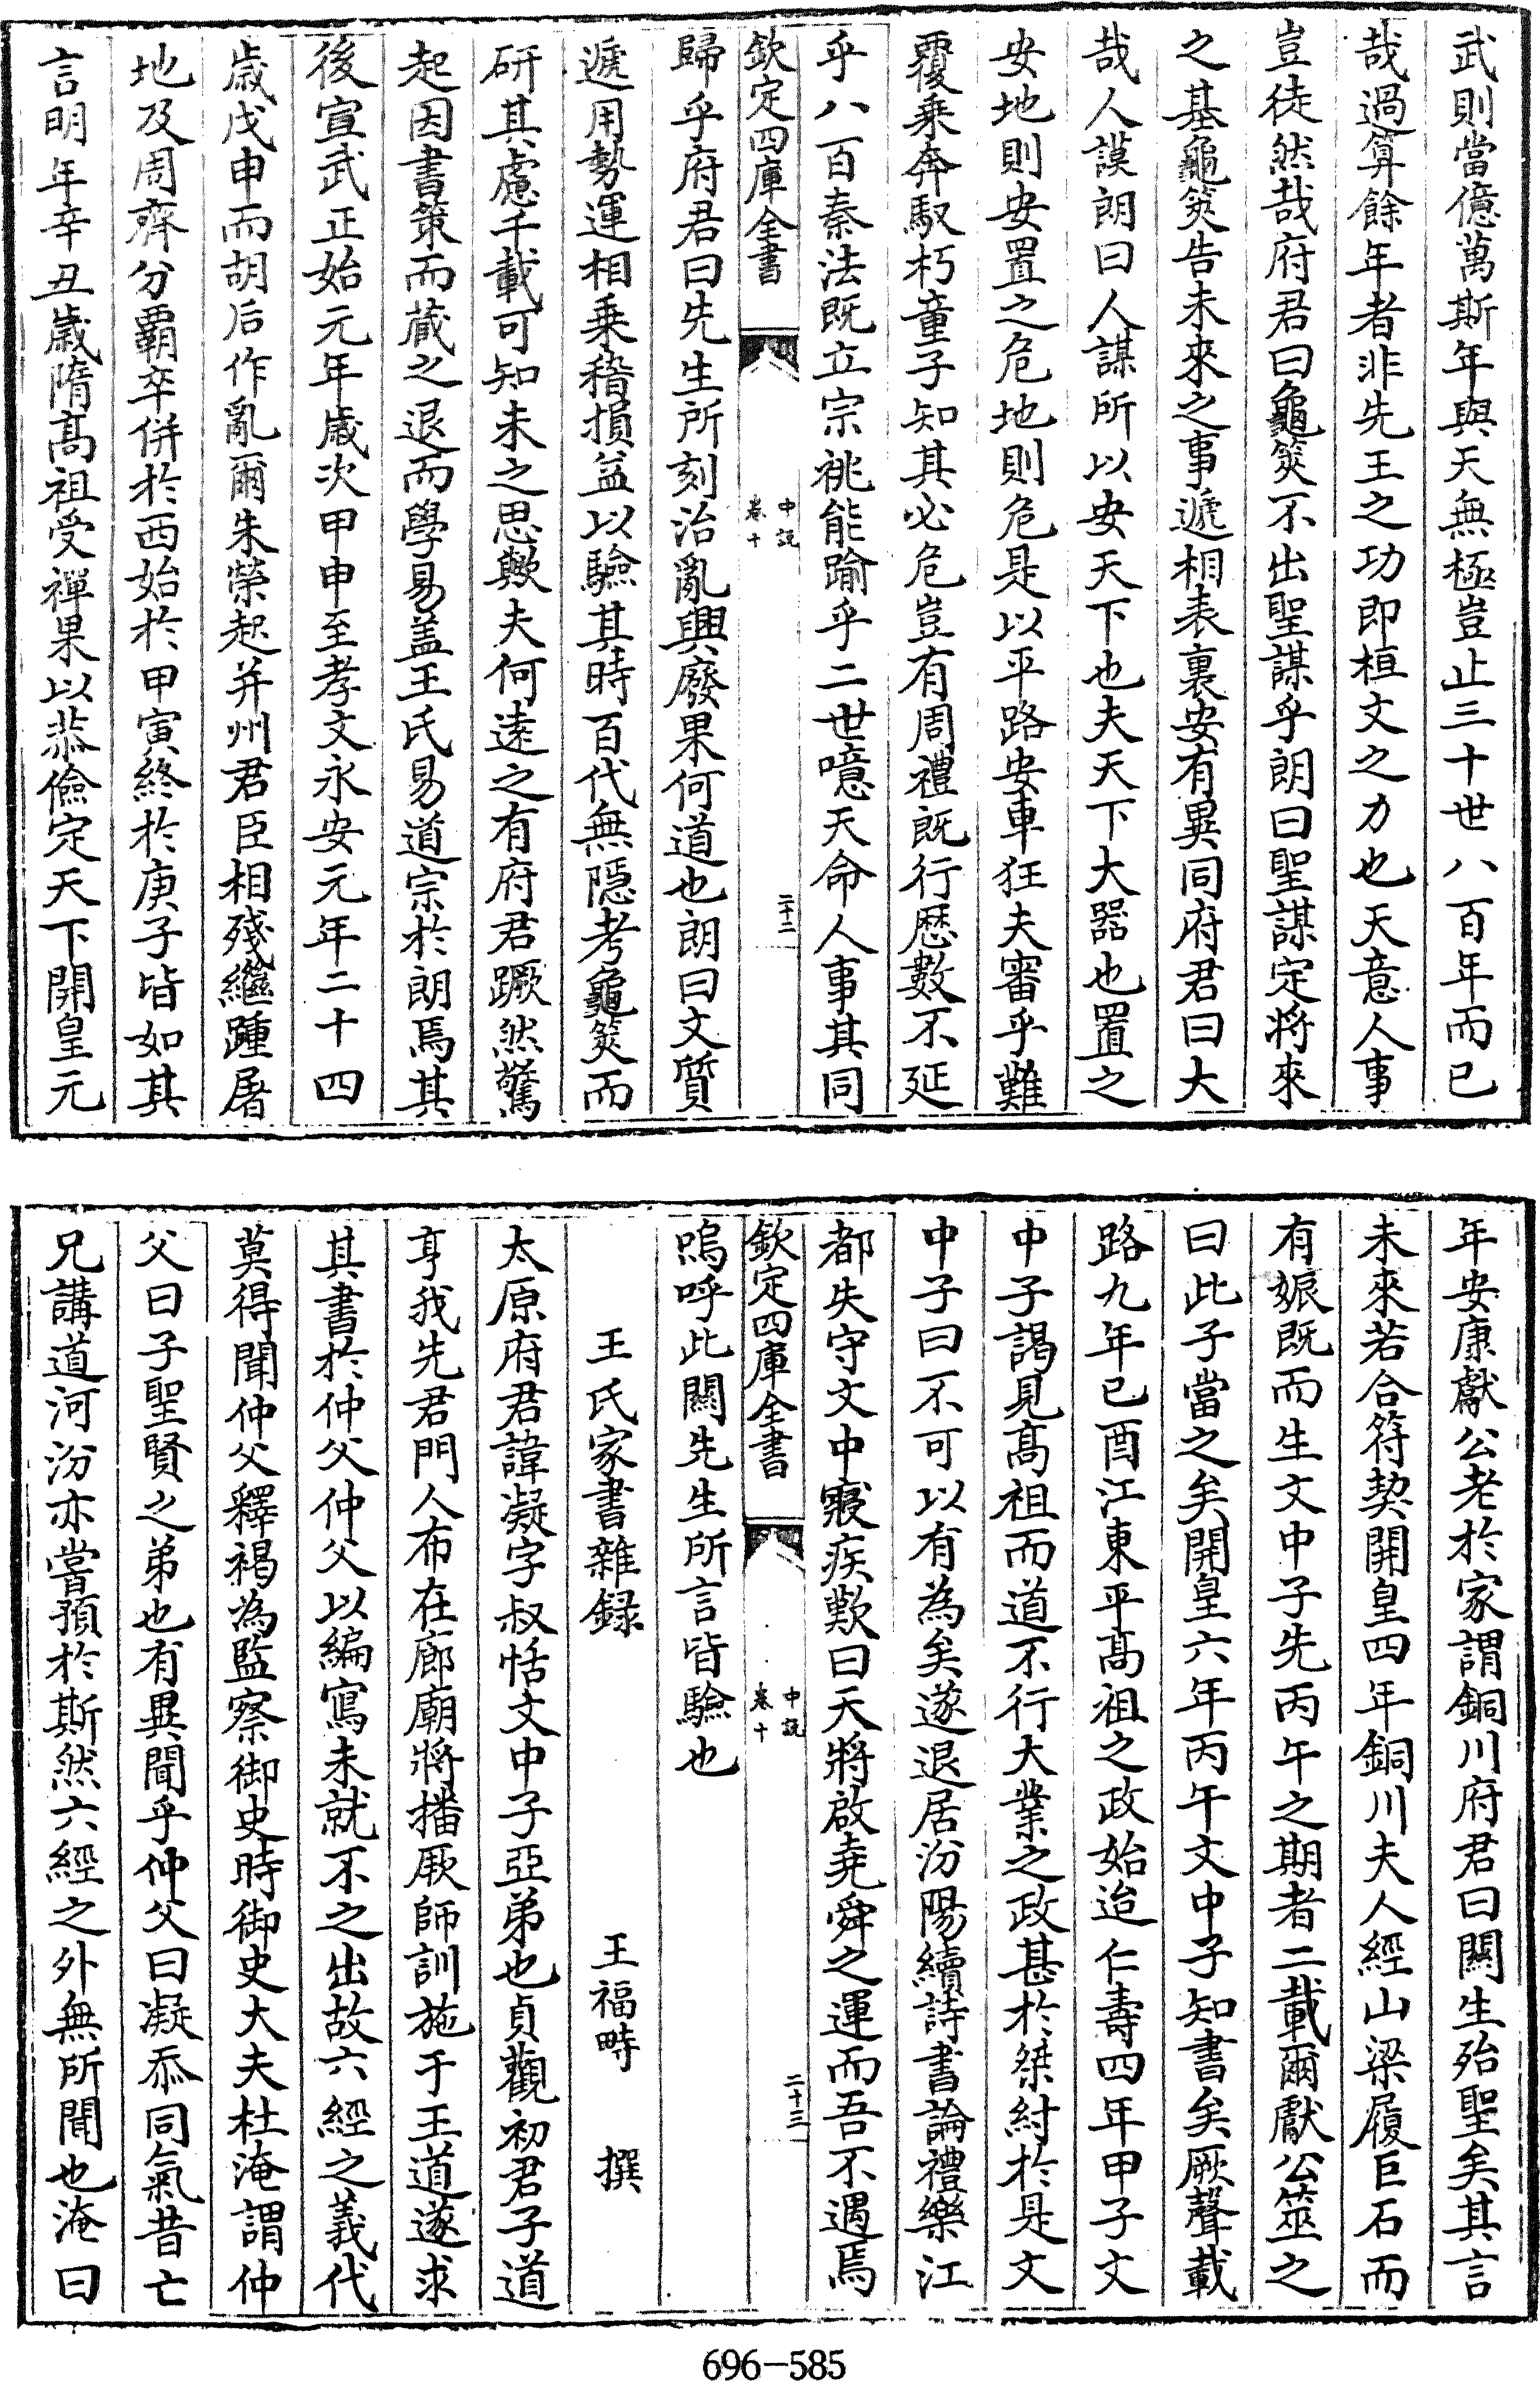 武則當億萬斯年與天無極豈止三十世八百年而已
哉過算餘年者非先王之功即桓文之力也天意人事
豈徒然哉府君曰龜筴不出聖謀乎朗曰聖謀定將來
之基龜筴告未來之事遞相表裏安有異同府君曰大
哉人謨朗曰人謀所以安天下也夫天下大器也置之
安地則安置之危地則危是以平路安車狂夫審乎難
覆乘奔馭朽童子知其必危豈有周禮既行歴數不延
乎八百秦法既立宗祧能踰乎二世噫天命人事其同
欽定四庫全書
中說
卷十
二十二
歸乎府君曰先生所刻治亂興廢果何道也朗曰文質
遞用勢運相乗稽損益以驗其時百代無隱考龜筴而
研其慮千載可知未之思歟夫何遠之有府君蹶然驚
起因書策而藏之退而學易盖王氏易道宗於朗焉其
後宣武正始元年歲次甲申至孝文永安元年二十四
歲戊申而胡后作亂爾朱榮起并州君臣相殘繼踵屠
地及周齊分霸卒併於西始於甲寅終於庚子皆如其
言明年辛丑歲隋髙祖受禪果以恭儉定天下開皇元
年安康獻公老於家謂銅川府君曰關生殆聖矣其言
未來若合符契開皇四年銅川夫人經山梁履巨石而
有娠既而生文中子先丙午之期者二載爾獻公筮之
曰此子當之矣開皇六年丙午文中子知書矣厥聲載
路九年己酉江東平髙祖之政始迨仁壽四年甲子文
中子謁見髙祖而道不行大業之政甚於桀紂於是文
中子曰不可以有為矣遂退居汾陽續詩書論禮樂江
都失守文中寢疾歎曰天將啟堯舜之運而吾不遇焉
欽定四庫全書
中說
卷十
二十三
嗚呼此關先生所言皆驗也
王氏家書雜録
王福畤 撰
太原府君諱凝字叔恬文中子亞弟也貞觀初君子道
亨我先君門人布在廊廟將播厥師訓施于王道遂求
其書於仲父仲父以編寫未就不之出故六經之義代
莫得聞仲父釋褐為監察御史時御史大夫杜淹謂仲
父曰子聖賢之弟也有異聞乎仲父曰凝忝同氣昔亡
兄講道河汾亦嘗預於斯然六經之外無所聞也淹曰
696-585